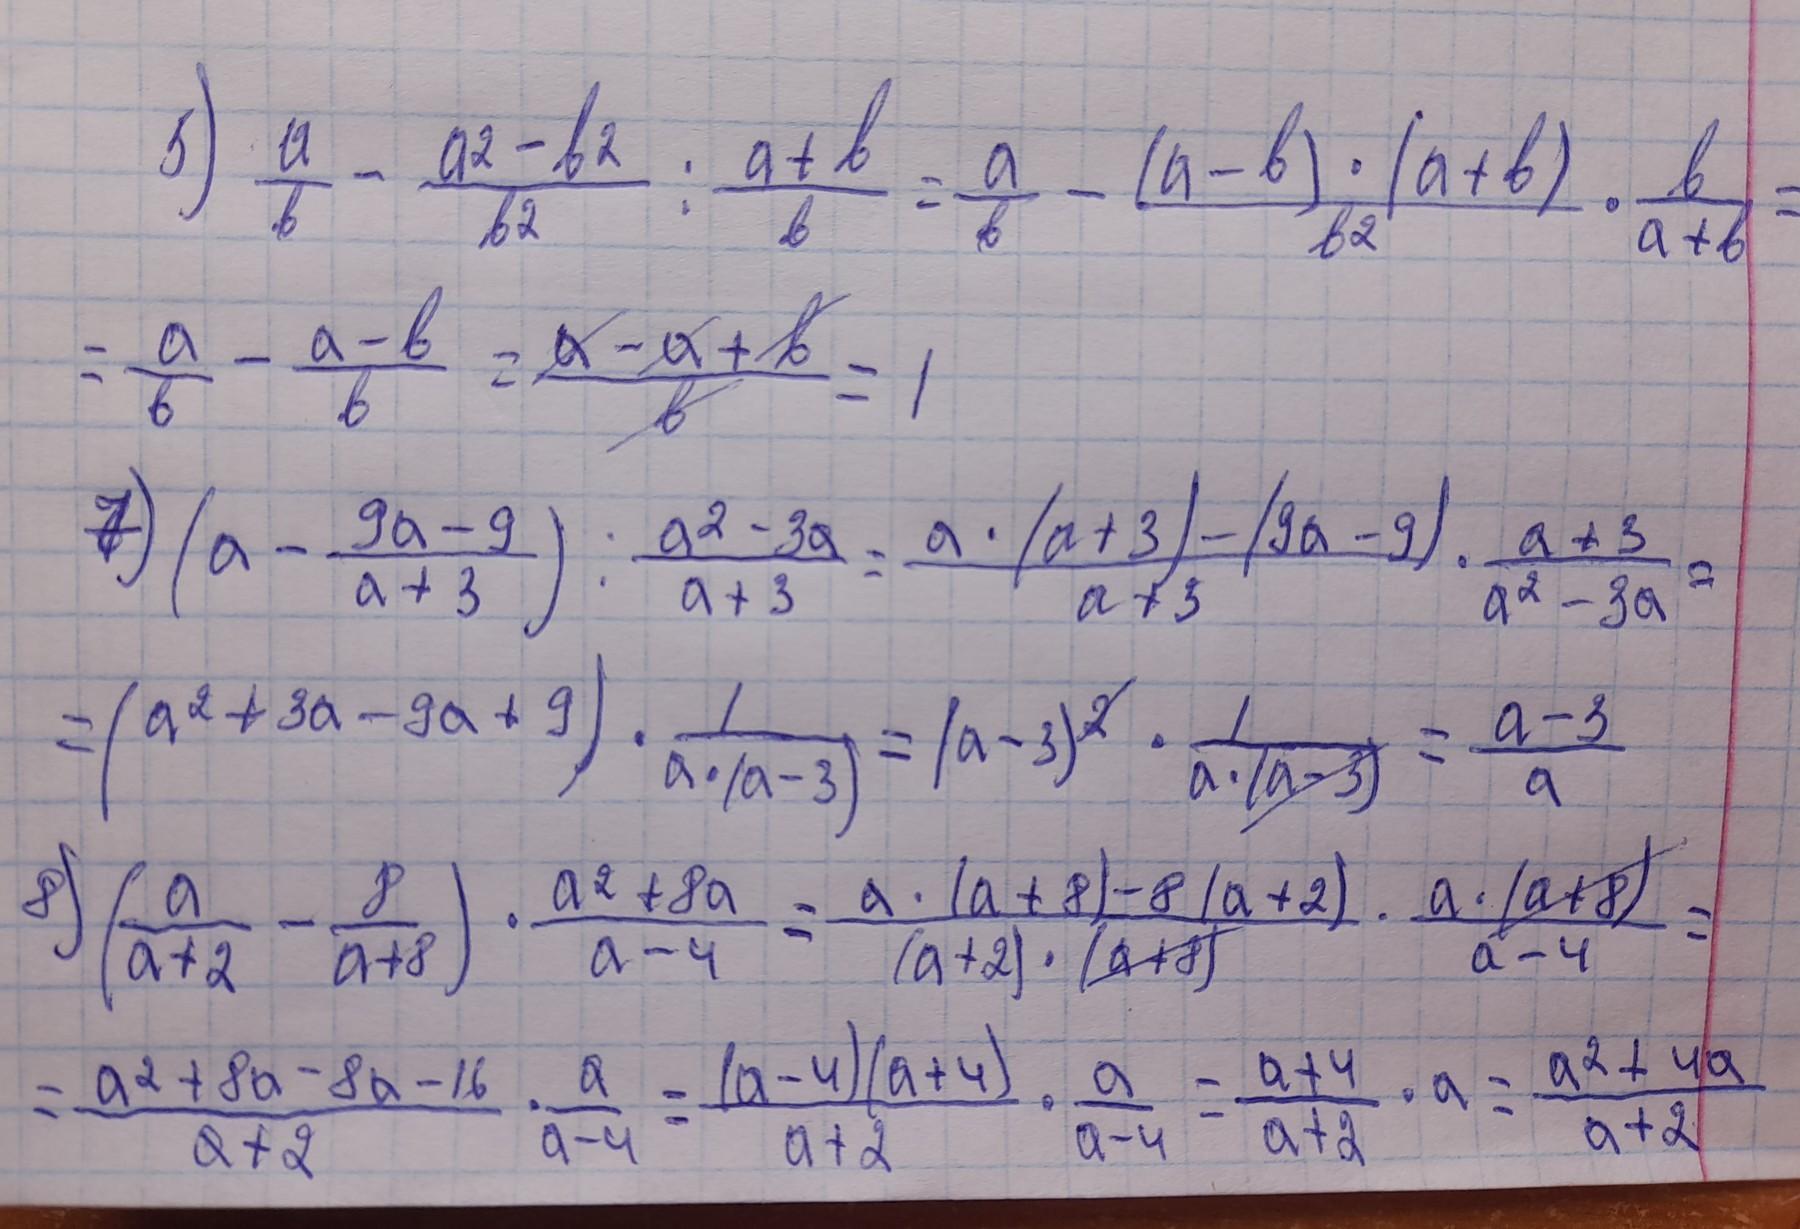 5) a/b - (a2 - b2)/b2 : (a + b)/b = a/b - ((a - b) · (a + b))/b2 · b/(a + b) =
= a/b - (a - b)/b = (a - a + b)/b = 1
7) (a - (9a - 9)/(a + 3)) : (a2 - 3a)/(a + 3) = (a · (a + 3) - (9a - 9))/(a + 3) · (a + 3)/(a2 - 3a) =
= (a2 + 3a - 9a + 9) · 1/(a · (a - 3)) = (a - 3)2 · 1/(a · (a - 3)) = (a - 3)/a
8) (a/(a + 2) - 8/(a + 8)) · (a2 + 8a)/(a - 4) = (a · (a + 8) - 8(a + 2))/((a + 2) · (a + 8)) · (a · (a + 8))/(a - 4) =
= (a2 + 8a - 8a - 16)/(a + 2) · a/(a - 4) = ((a - 4)(a + 4))/(a + 2) · a/(a - 4) = (a + 4)/(a + 2) · a = (a2 + 4a)/(a + 2)